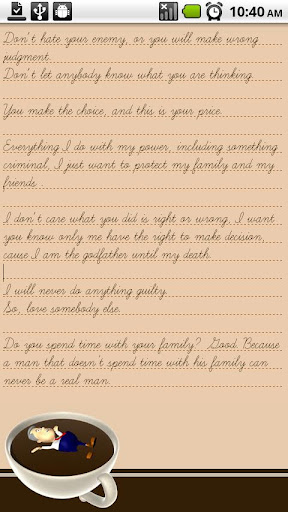 10:40 AM
Don't hate your enemy, or you will make wrong
judgment.
Don't let anybody know what you are thinking.
You make the choice, and this is your price.
Everything I do with my power, including something
criminal, I just want to protect my family and my
friends.
I don't care what you did is right or wrong, I want
you know only me have the right to make decision,
cause I am the godfather until my death.
I will never do anything guilty.
So, love somebody else.
Do you spend time with your family? Good. Because
a man that doesn't spend time with his family can
never be a real man.